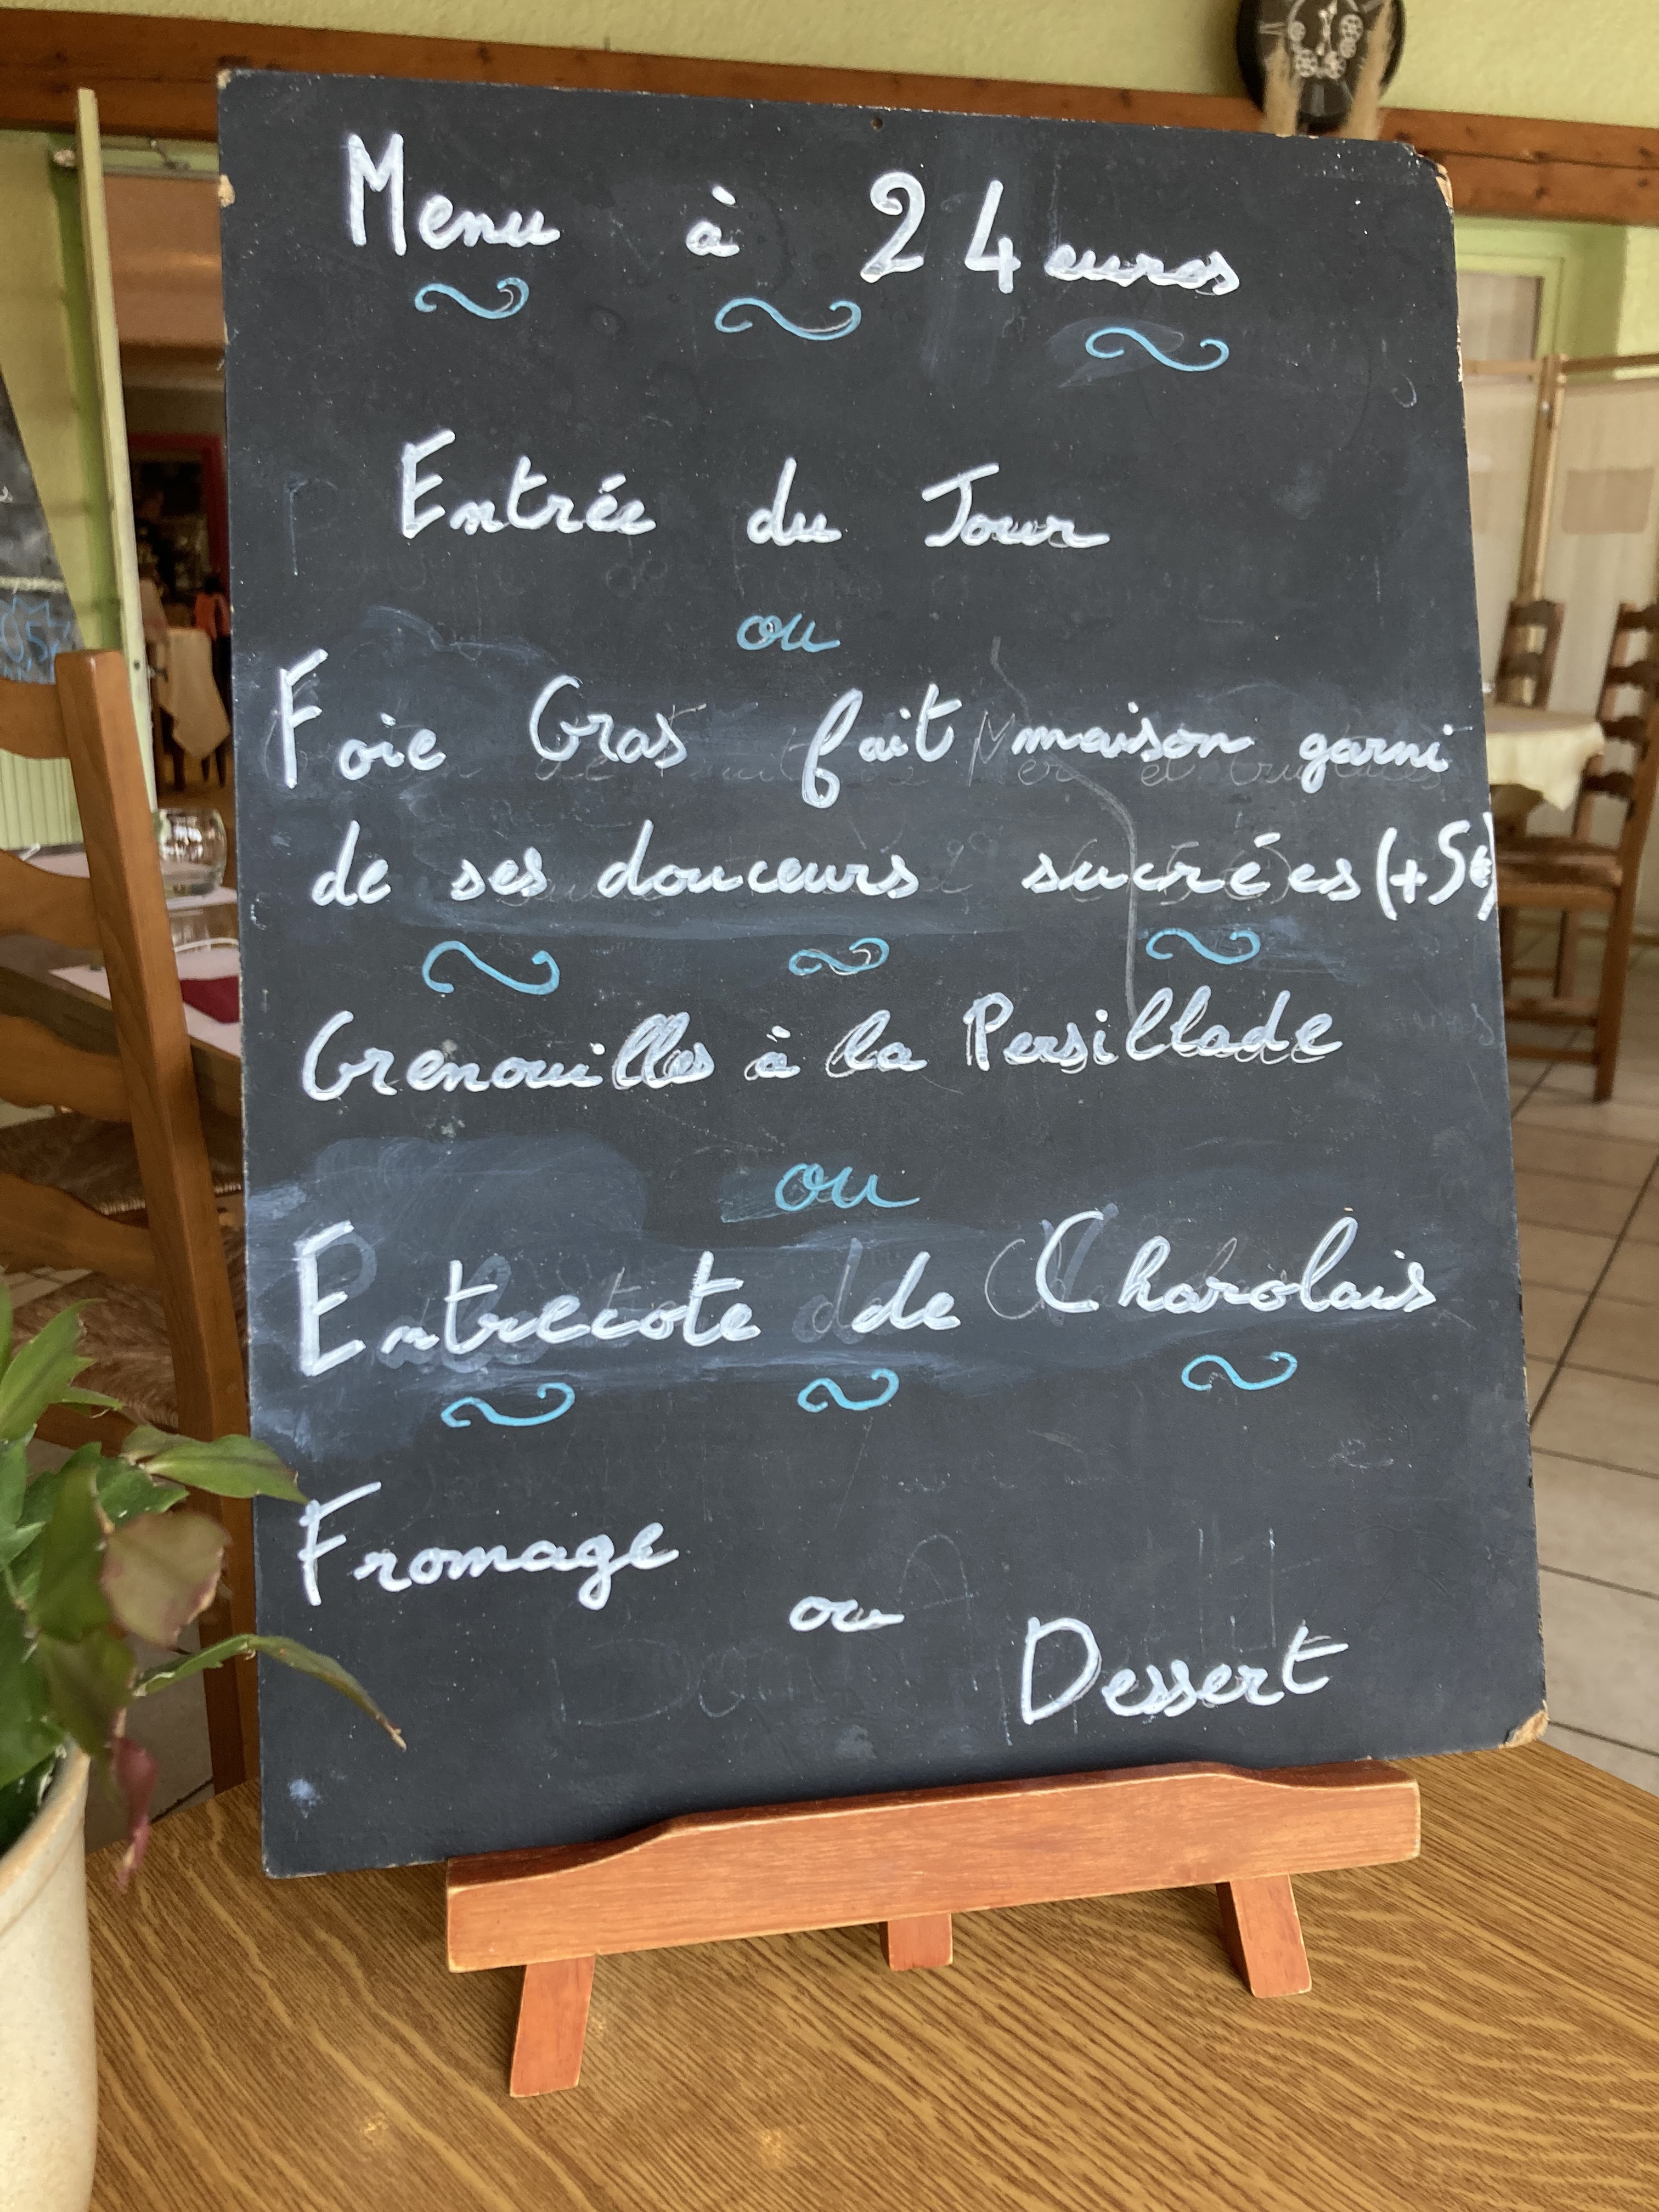 Menu à 24 euros
Entrée du Jour
ou
Foie Gras fait maison garni
de ses douceurs sucrées (+5€)
Grenouilles à la Persillade
ou
Entrecote de Charolais
Fromage
ou
Dessert